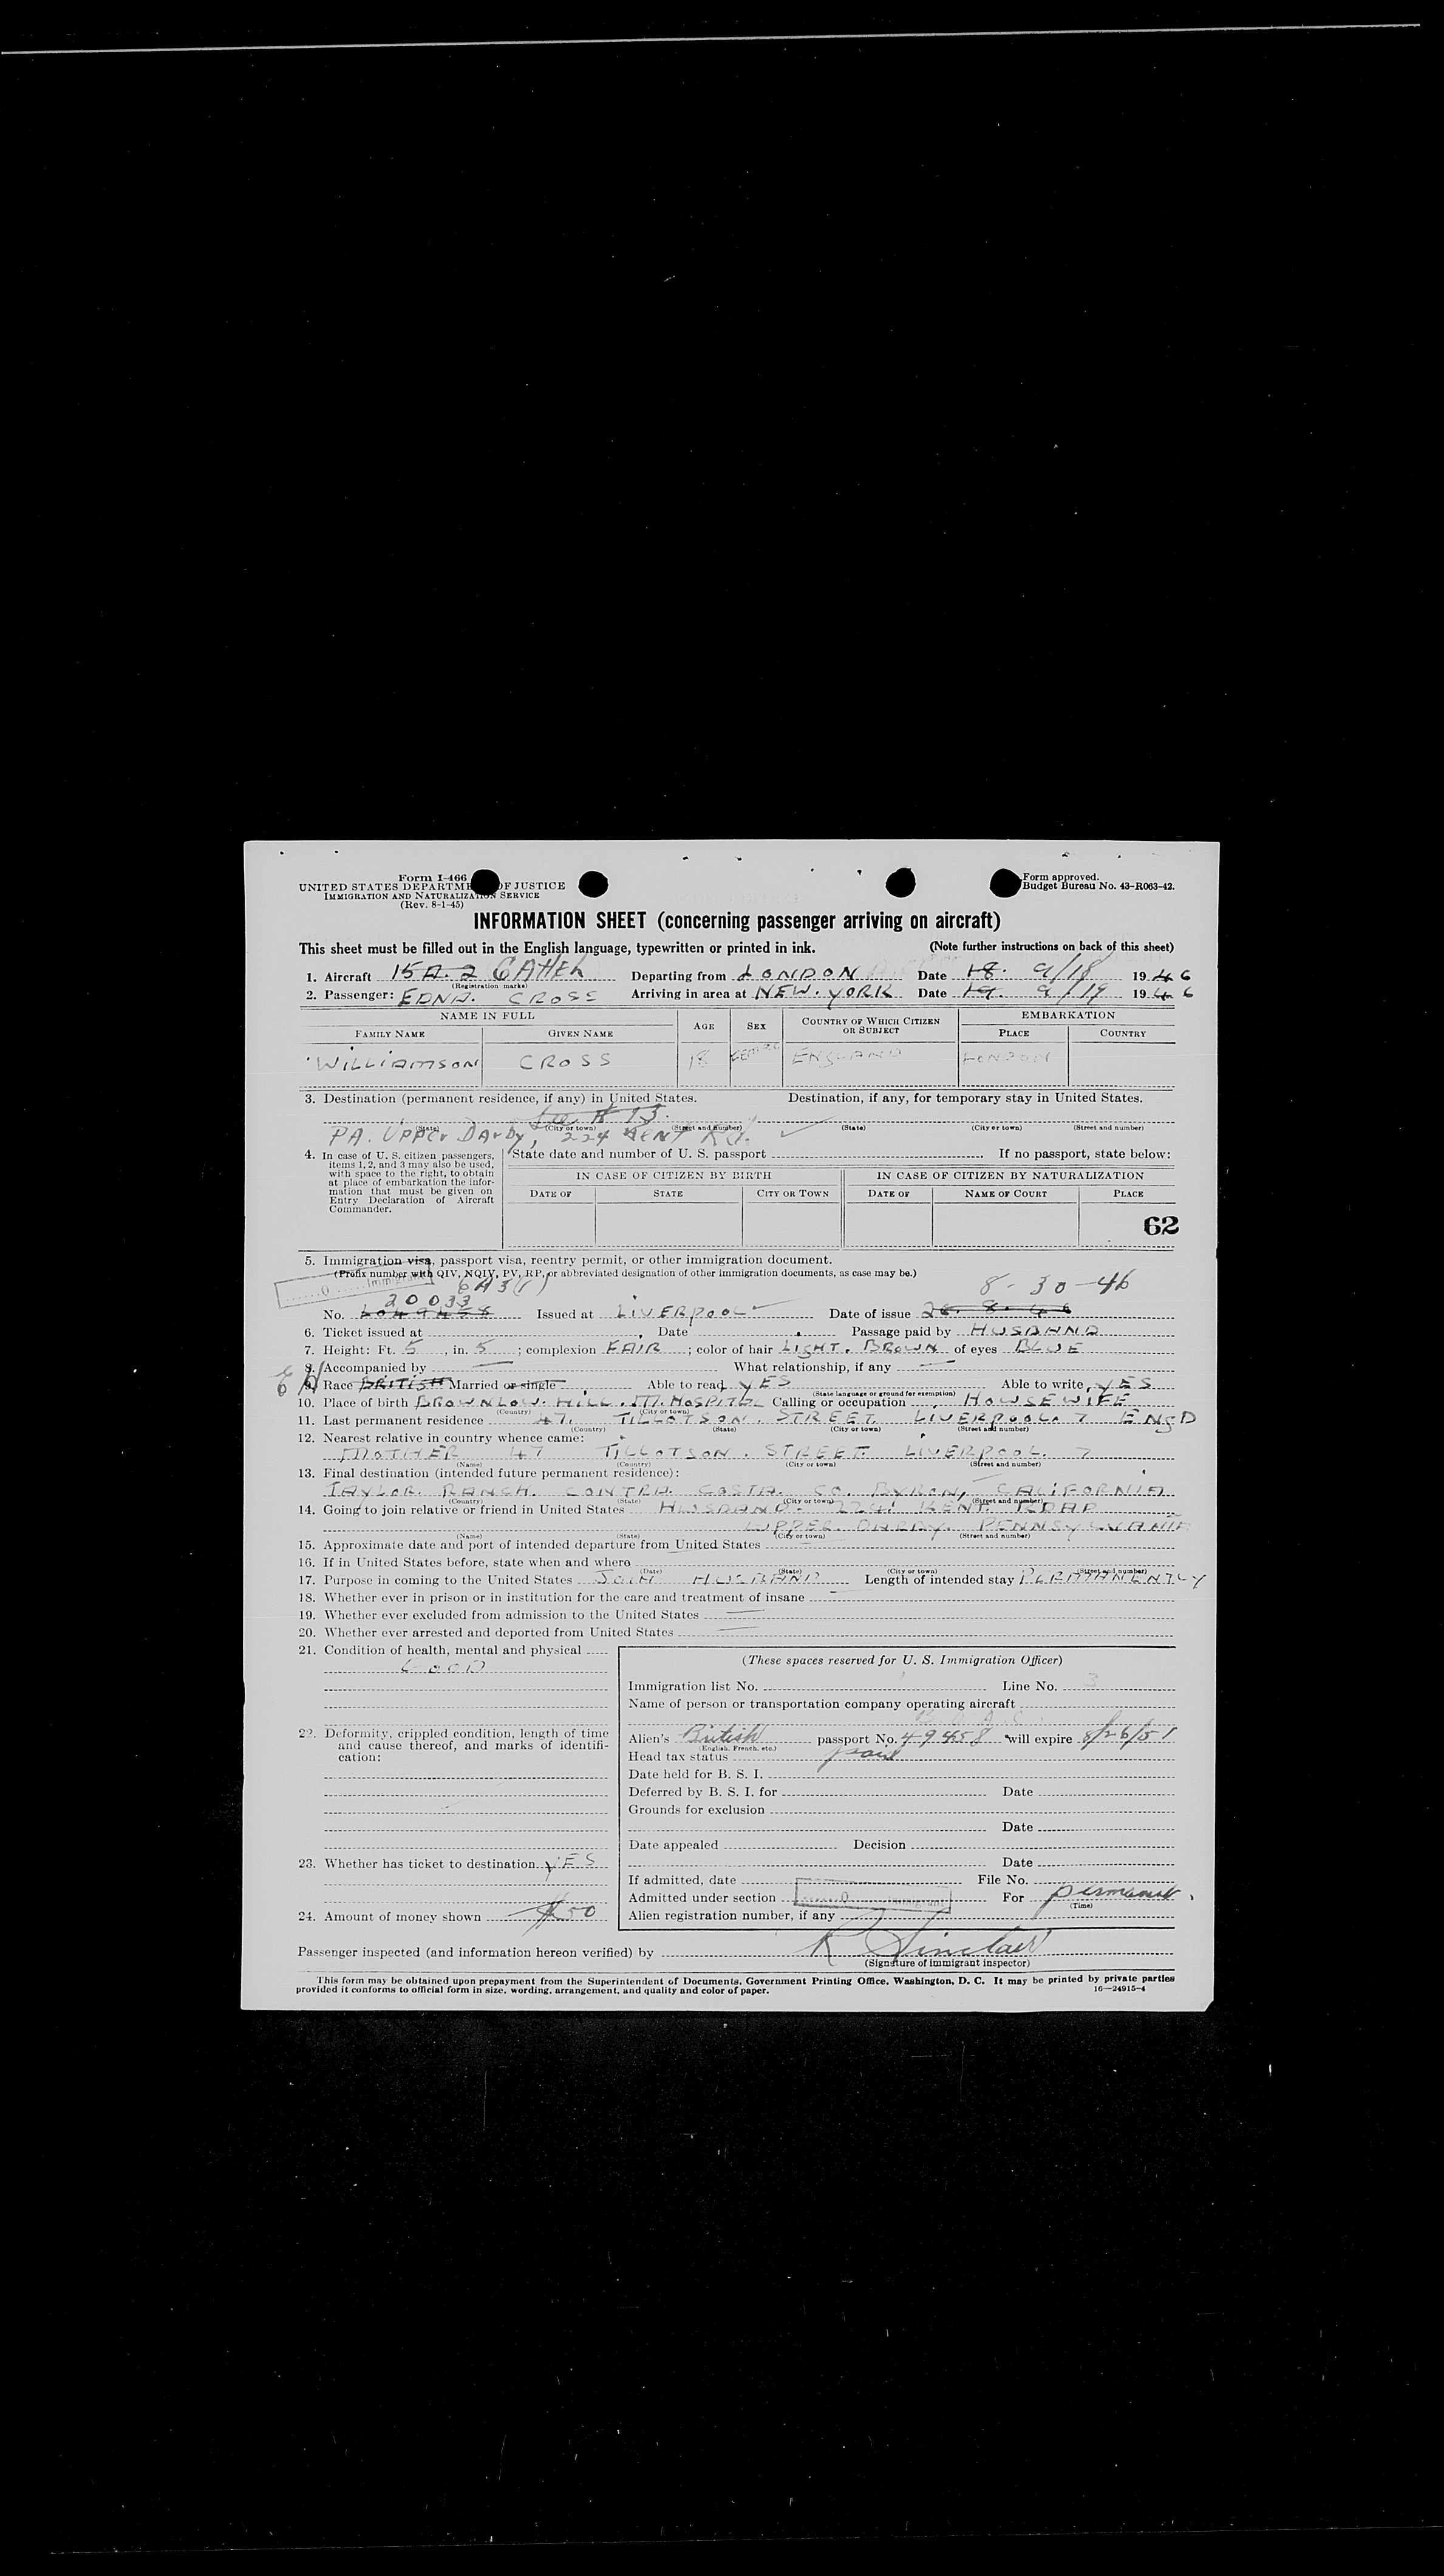 Form I-466
UNITED STATES DEPARTMENT OF JUSTICE
IMMIGRATION AND NATURALIZATION SERVICE
(Rev. 8-1-45)
Form approved.
Budget Bureau No. 43-R063-42.
INFORMATION SHEET (concerning passenger arriving on aircraft)
This sheet must be filled out in the English language, typewritten or printed in ink. (Note further instructions on back of this sheet)
1. Aircraft 15A.2 Departing from LONDON Date 18. 9/18 1946
(Registration marks)
2. Passenger: EDNA. CROSS Arriving in area at NEW. YORK Date 19. 9/19 1946
NAME IN FULL AGE SEX COUNTRY OF WHICH CITIZEN OR SUBJECT EMBARKATION
FAMILY NAME GIVEN NAME PLACE COUNTRY
WILLIAMSON CROSS 18 FEMALE ENGLAND LONDON
3. Destination (permanent residence, if any) in United States. Destination, if any, for temporary stay in United States.
See # 13.
(State) (City or town) (Street and number) (State) (City or town) (Street and number)
PA. UPPer DArby, 224 KENT Rd.
4. In case of U. S. citizen passengers, items 1, 2, and 3 may also be used, with space to the right, to obtain at place of embarkation the information that must be given on Entry Declaration of Aircraft Commander.
State date and number of U. S. passport If no passport, state below:
IN CASE OF CITIZEN BY BIRTH IN CASE OF CITIZEN BY NATURALIZATION
DATE OF STATE CITY OR TOWN DATE OF NAME OF COURT PLACE
62
5. Immigration visa, passport visa, reentry permit, or other immigration document.
(Prefix number with QIV, NQIV, PV, RP, or abbreviated designation of other immigration documents, as case may be.)
6A3(1) 8-30-46
20033
No. Issued at LIVERPOOL Date of issue 26. 8. 46
6. Ticket issued at , Date Passage paid by HUSBAND
7. Height: Ft. 5, in. 5; complexion FAIR; color of hair LIGHT. BROWN of eyes BLUE
8. Accompanied by — What relationship, if any —
9. Race BRITISH Married or single Able to read YES Able to write YES
(State language or ground for exemption)
10. Place of birth BROWNLOW. HILL. HOSPITAL Calling or occupation HOUSEWIFE
(Country) (City or town)
11. Last permanent residence 47. TILLOTSON. STREET. LIVERPOOL. 7 ENGD
(Country) (State) (City or town) (Street and number)
12. Nearest relative in country whence came:
MOTHER 47 TILLOTSON. STREET. LIVERPOOL. 7
(Name) (Country) (City or town) (Street and number)
13. Final destination (intended future permanent residence):
TAYLOR RANCH. CONTRA. COSTA. CO. BYRON, CALIFORNIA
(Country) (State) (City or town) (Street and number)
14. Going to join relative or friend in United States HUSBAND. 224 KENT. ROAD
UPPER. DARBY. PENNSYLVANIA
(Name) (State) (City or town) (Street and number)
15. Approximate date and port of intended departure from United States
16. If in United States before, state when and where
(Date) (State) (City or town) (Street and number)
17. Purpose in coming to the United States JOIN HUSBAND Length of intended stay PERMANENTLY
18. Whether ever in prison or in institution for the care and treatment of insane —
19. Whether ever excluded from admission to the United States —
20. Whether ever arrested and deported from United States —
21. Condition of health, mental and physical
GOOD
22. Deformity, crippled condition, length of time and cause thereof, and marks of identification:
23. Whether has ticket to destination YES
24. Amount of money shown $50
(These spaces reserved for U. S. Immigration Officer)
Immigration list No. Line No. 3
Name of person or transportation company operating aircraft
Alien's British passport No. 49458 will expire 8/26/51
(English, French, etc.)
Head tax status paid
Date held for B. S. I.
Deferred by B. S. I. for Date
Grounds for exclusion
Date
Date appealed Decision
Date
If admitted, date File No.
Admitted under section For permanent
(Time)
Alien registration number, if any
Passenger inspected (and information hereon verified) by R Sinclair
(Signature of immigrant inspector)
This form may be obtained upon prepayment from the Superintendent of Documents, Government Printing Office, Washington, D. C. It may be printed by private parties
provided it conforms to official form in size, wording, arrangement, and quality and color of paper. 16—24915-4